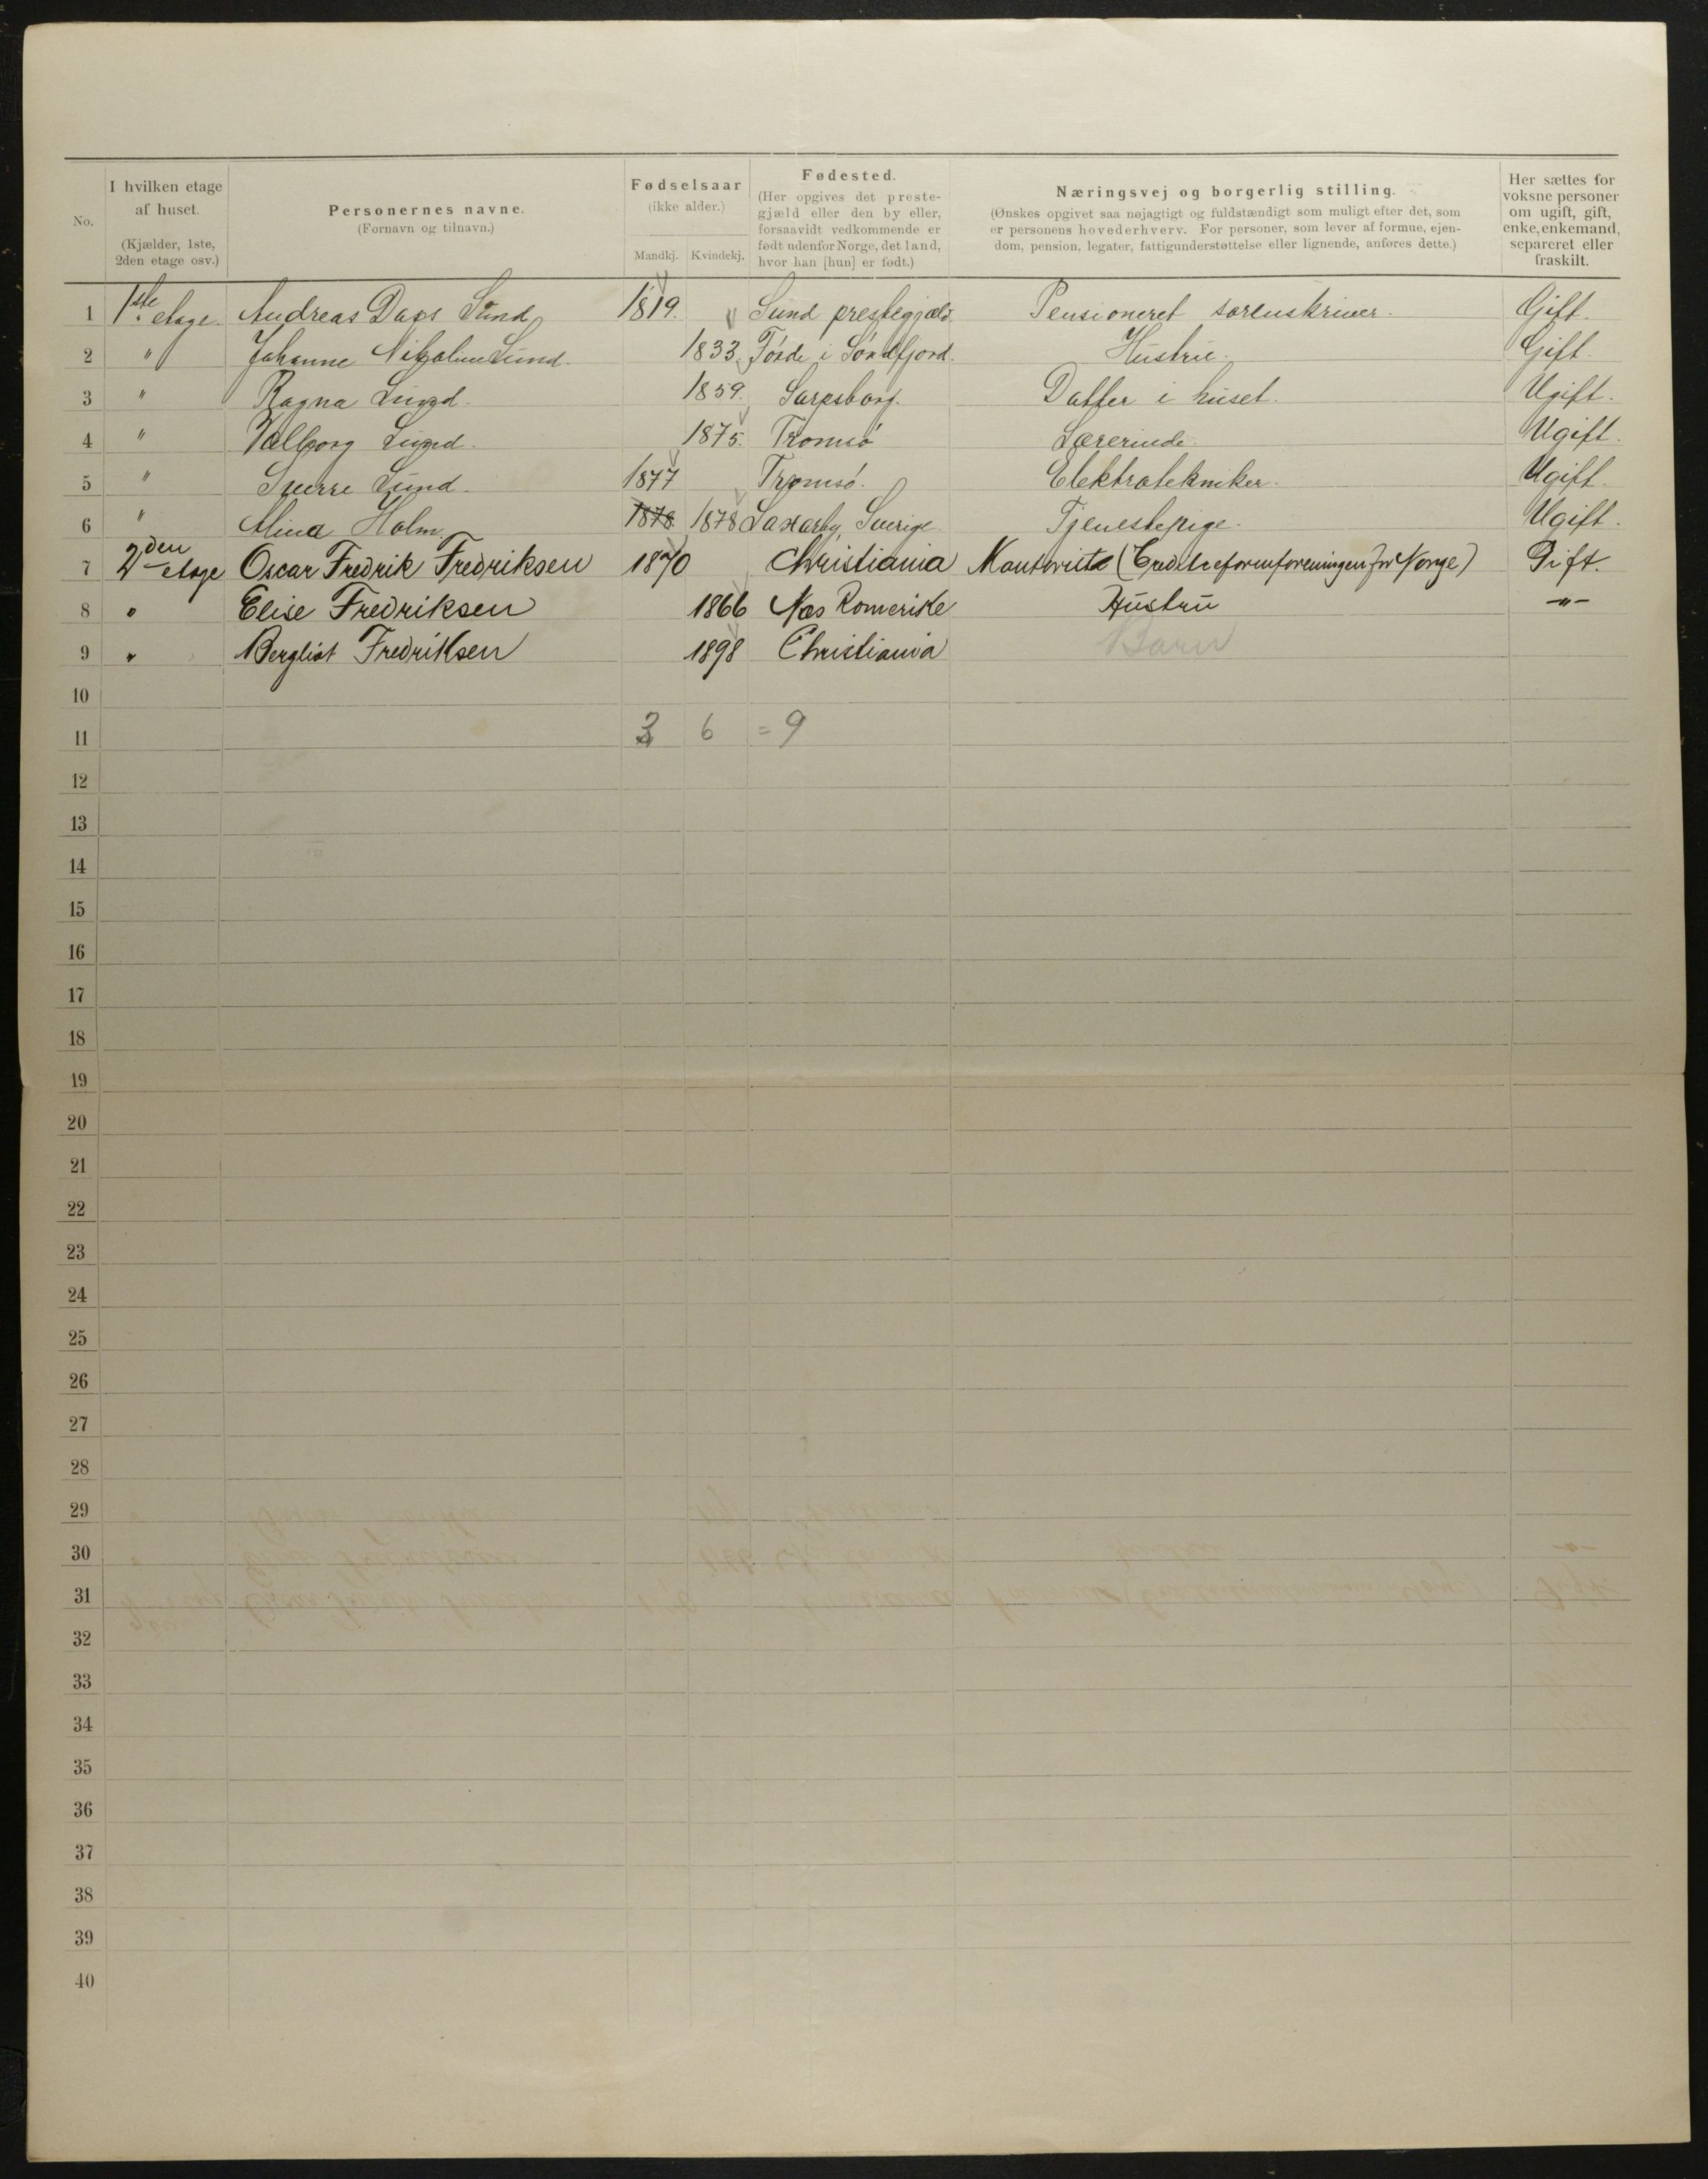 No.
I hvilken etage af huset. (Kjælder, 1ste, 2den etage osv.)
Personernes navne. (Fornavn og tilnavn.)
Fødselsaar (ikke alder.) Mandkj. Kvindekj.
Fødested. (Her opgives det prestegjæld eller den by eller, forsaavidt vedkommende er født udenfor Norge, det land, hvor han [hun] er født.)
Næringsvej og borgerlig stilling. (Ønskes opgivet saa nøjagtigt og fuldstændigt som muligt efter det, som er personens hovederhverv. For personer, som lever af formue, ejendom, pension, legater, fattigunderstøttelse eller lignende, anføres dette.)
Her sættes for voksne personer om ugift, gift, enke, enkemand, separeret eller fraskilt.
1 1ste etage. Andreas Daos Lund 1819. Sund prestegjæld Pensioneret sorenskriver. Gift.
2 " Johanne Nikoline Lund. 1833. Förde i Söndfjord. Hustru. Gift.
3 " Ragna Lund. 1859. Sarpsborg. Datter i huset. Ugift.
4 " Valborg Lund. 1875. Tromsö Lærerinde. Ugift.
5 " Sverre Lund. 1877 Tromsö. Elektrotekniker. Ugift.
6 " Alma Holm. 1878 1878 Sverige. Tjenestepige. Ugift.
7 2den etage Oscar Fredrik Fredriksen 1870 Christiania Kontorist (Creditreformforeningen for Norge) Gift.
8 " Elise Fredriksen 1866 Næs Romerike Hustru -"-
9 " Bergliot Fredriksen 1898 Christiania Barn
10
11 3 6 = 9
12
13
14
15
16
17
18
19
20
21
22
23
24
25
26
27
28
29
30
31
32
33
34
35
36
37
38
39
40